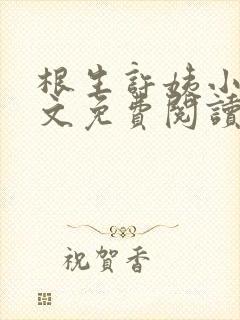 根生許姨小
文免費閱讀
祝賀香